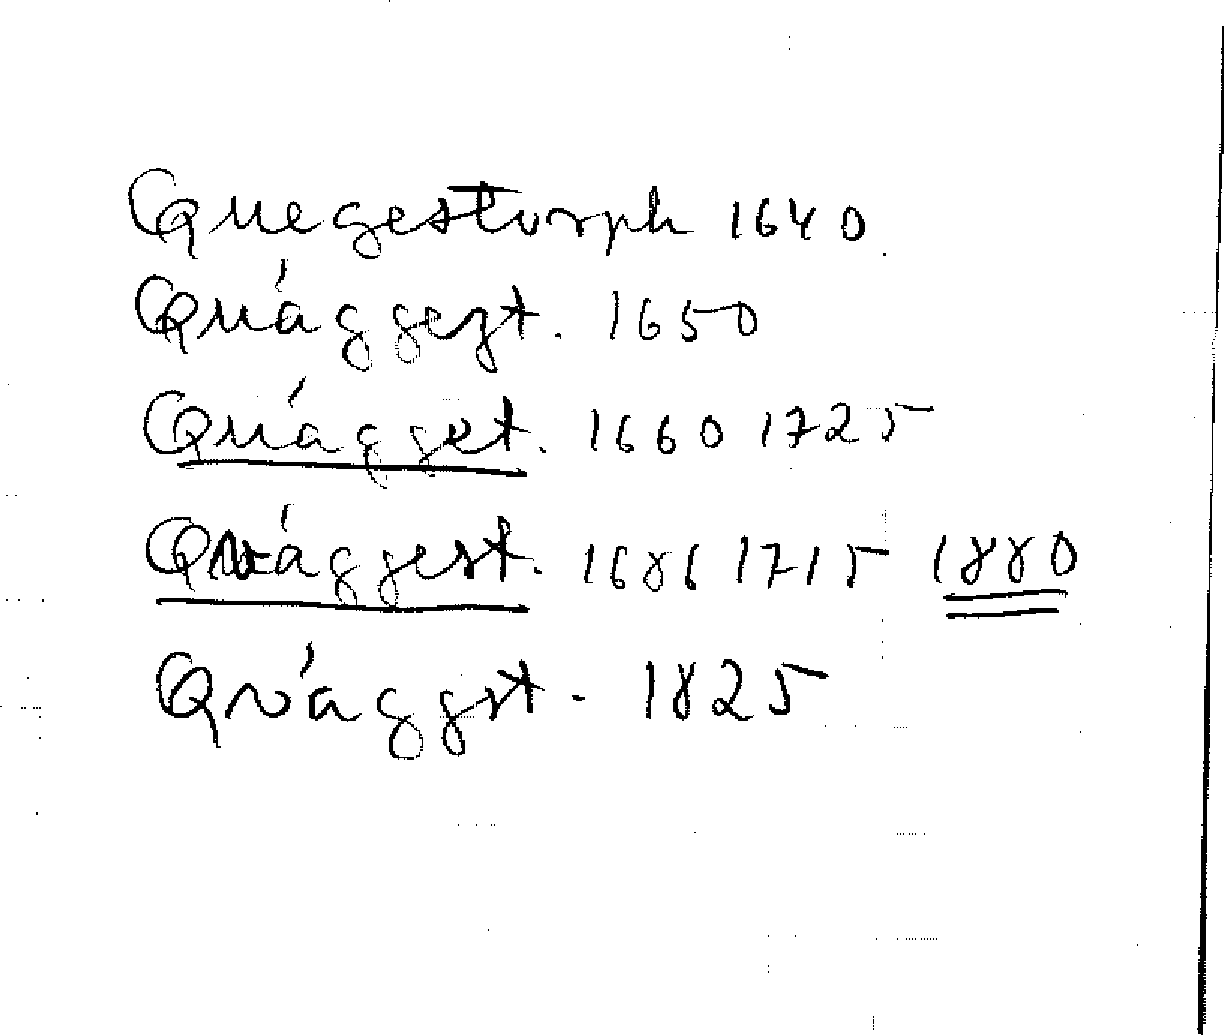 Quegestorph 1640
Quággezt. 1650
Quágget. 1660 1725
Qvággest. 1686 1715 1880
Qvággst. 1825